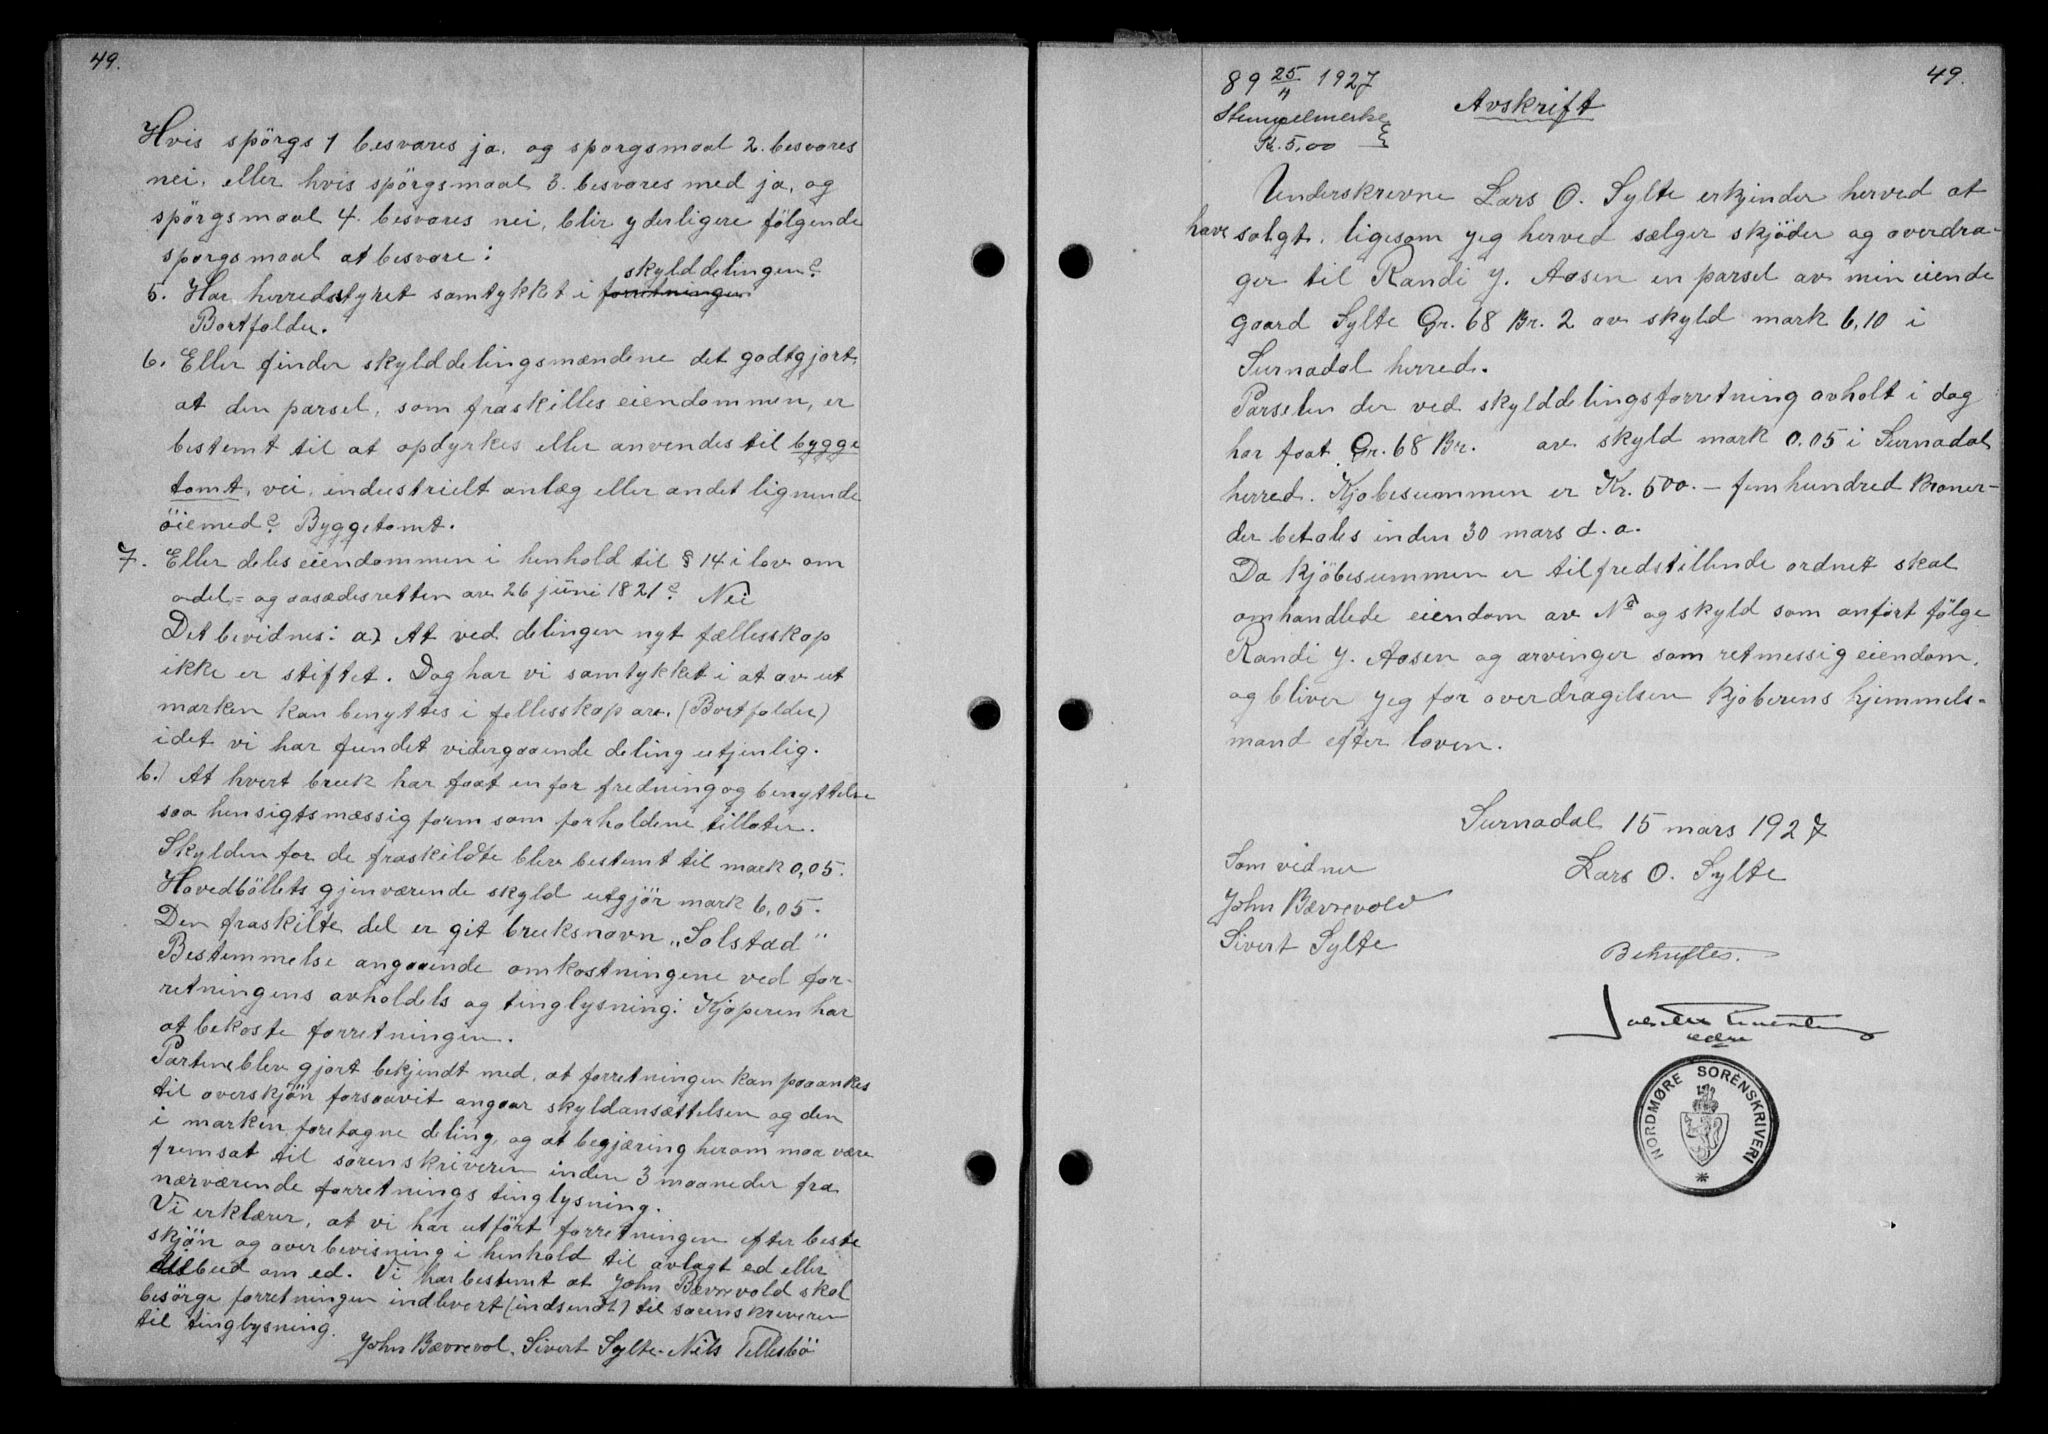 49.
Hvis spörgs 1 besvares ja. og sporgsmaal 2. besvares
nei, eller hvis spörgsmaal 3. besvares med ja, og
spörgsmaal 4. besvares nei, blir yderligere fölgende
sporgsmaal at besvare:
skylddelingen?
5. Har herredstyret samtykket i forretningen
Bortfalder.
6. Eller finder skylddelingsmændene det godtgjort
at den parsel, som fraskilles eiendommen, er
bestemt til at opdyrkes eller anvendes til bygge
tomt, vei, industrielt anlæg eller andet lignende
öiemed? Byggetomt.
7. Eller deles eiendommen i henhold til § 14 i lov om
odel- og aasædesretten av 26 juni 1821? Nei
Det bevidnes: a) At ved delingen nyt fællesskap
ikke er stiftet. Dog har vi samtykket i at av ut
marken kan benyttes i fellesskap av. (Bortfalder)
idet vi har fundet videregaaende deling utjenlig.
b.) At hvert bruk har faat en for fredning og benyttelse
saa hensigtsmæssig form som forholdene tillater.
Skylden for de fraskildte blev bestemt til mark 0,05.
Hovedböllets gjenværende skyld utgjör mark 6,05.
Den fraskilte del er git bruksnavn „Solstad"
Bestemmelse angaaende omkostningene ved for-
retningens avholdels og tinglysning: Kjøperen har
at bekoste forretningen.
Partene blev gjort bekjendt med, at forretningen kan paaankes
til overskjön forsaavit angaar skyldansættelsen og den
i marken foretagne deling, og at begjæring herom maa være
fremsat til sorenskriveren inden 3 maaneder fra
nærværende forretnings tinglysning.
Vi erklærer, at vi har utfört forretningen efter beste
skjön og overbevisning i henhold til avlagt ed eller
tilbud om ed. Vi har bestemt at John Bævrevold skal
besörge forretningen indlevert (indsendt) til sorenskriveren
til tinglysning.
John Bævrevol. Sivert Sylte. Nils Tellesbö
49.
89 25/4 1927
Avskrift
Stempelmerke
Kr. 5,00
Underskrevne Lars O. Sylte erkjender herved at
have solgt, ligesom jeg herved sælger skjöder og overdra-
ger til Randi J. Aasen en parsel av min eiende
gaard Sylte Gr. 68 Br. 2 av skyld mark 6,10 i
Surnadal herred.
Parselen der ved skylddelingsforretning avholt i dag
har faat Gr. 68 Br. av skyld mark 0.05 i Surnadal
herred. Kjöbesummen er Kr. 500.- femhundred kroner-
der betales inden 30 mars d.a.
Da kjöbesummen er tilfredstillende ordnet skal
omhandlede eiendom av No og skyld som anfört fölge
Randi J. Aasen og arvinger som retmessig eiendom,
og bliver jeg for overdragelsen kjøberens hjemmels-
mand efter loven.
Surnadal 15 mars 1927
Som vidner
Lars O. Sylte
John Bævrevold
Sivert Sylte
Bekreftes.
NORDMØRE SORENSKRIVERI